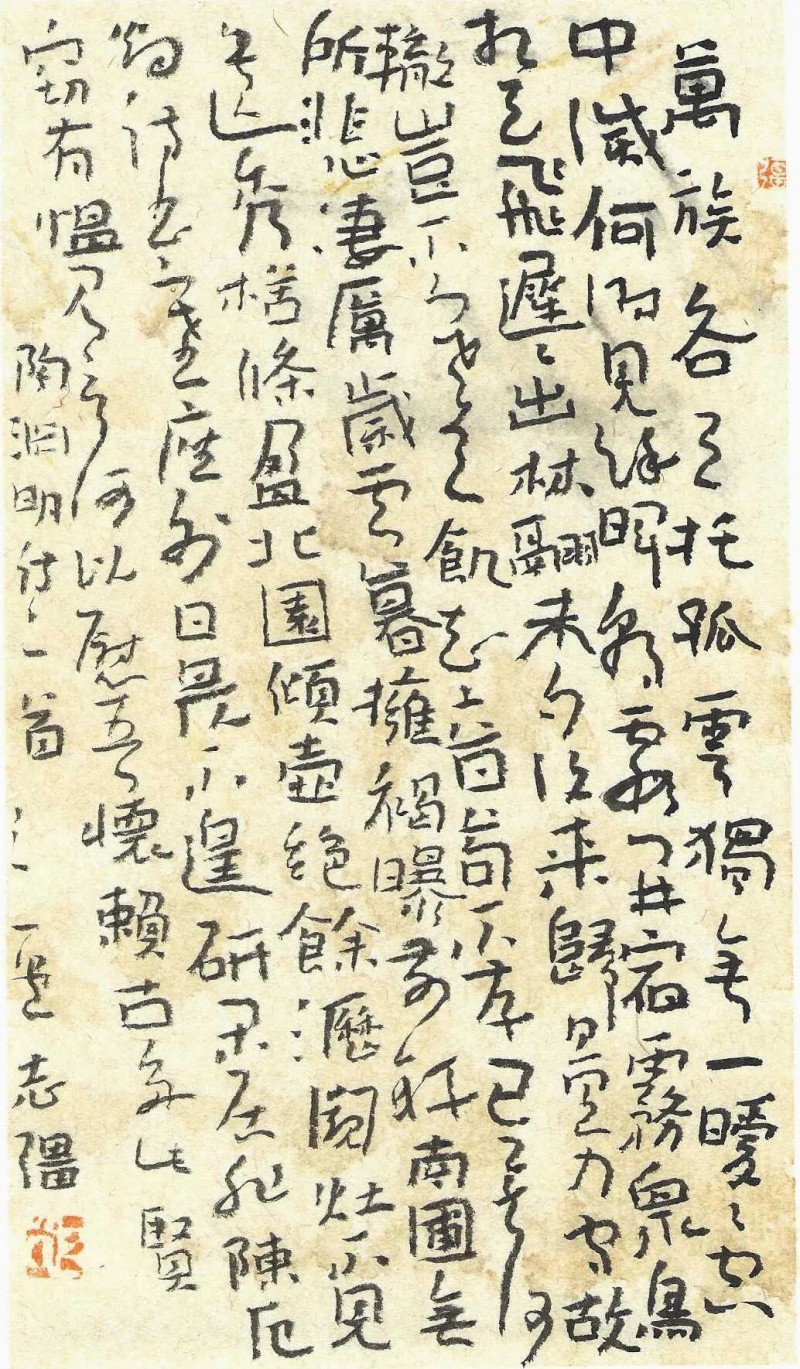 萬族各有托孤雲獨無一曖々空
中滅何時見餘暉朝霞開宿霧眾鳥
相與飛遲々出林翮未夕復來歸量力守故
轍豈不寒與飢知音苟不存已矣何
所悲淒厲歲云暮擁褐曝前軒南圃無
遺秀枯條盈北園傾壺絕餘瀝闚灶不見
煙詩書塞座外日昃不遑研閒居非陳厄
竊有慍見言何以慰吾懷賴古多此賢
陶淵明詩二首 志疆